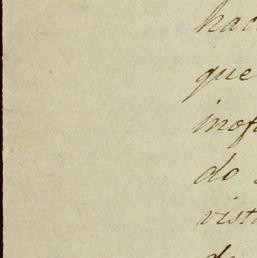 hac
que
inof
do
vist
de